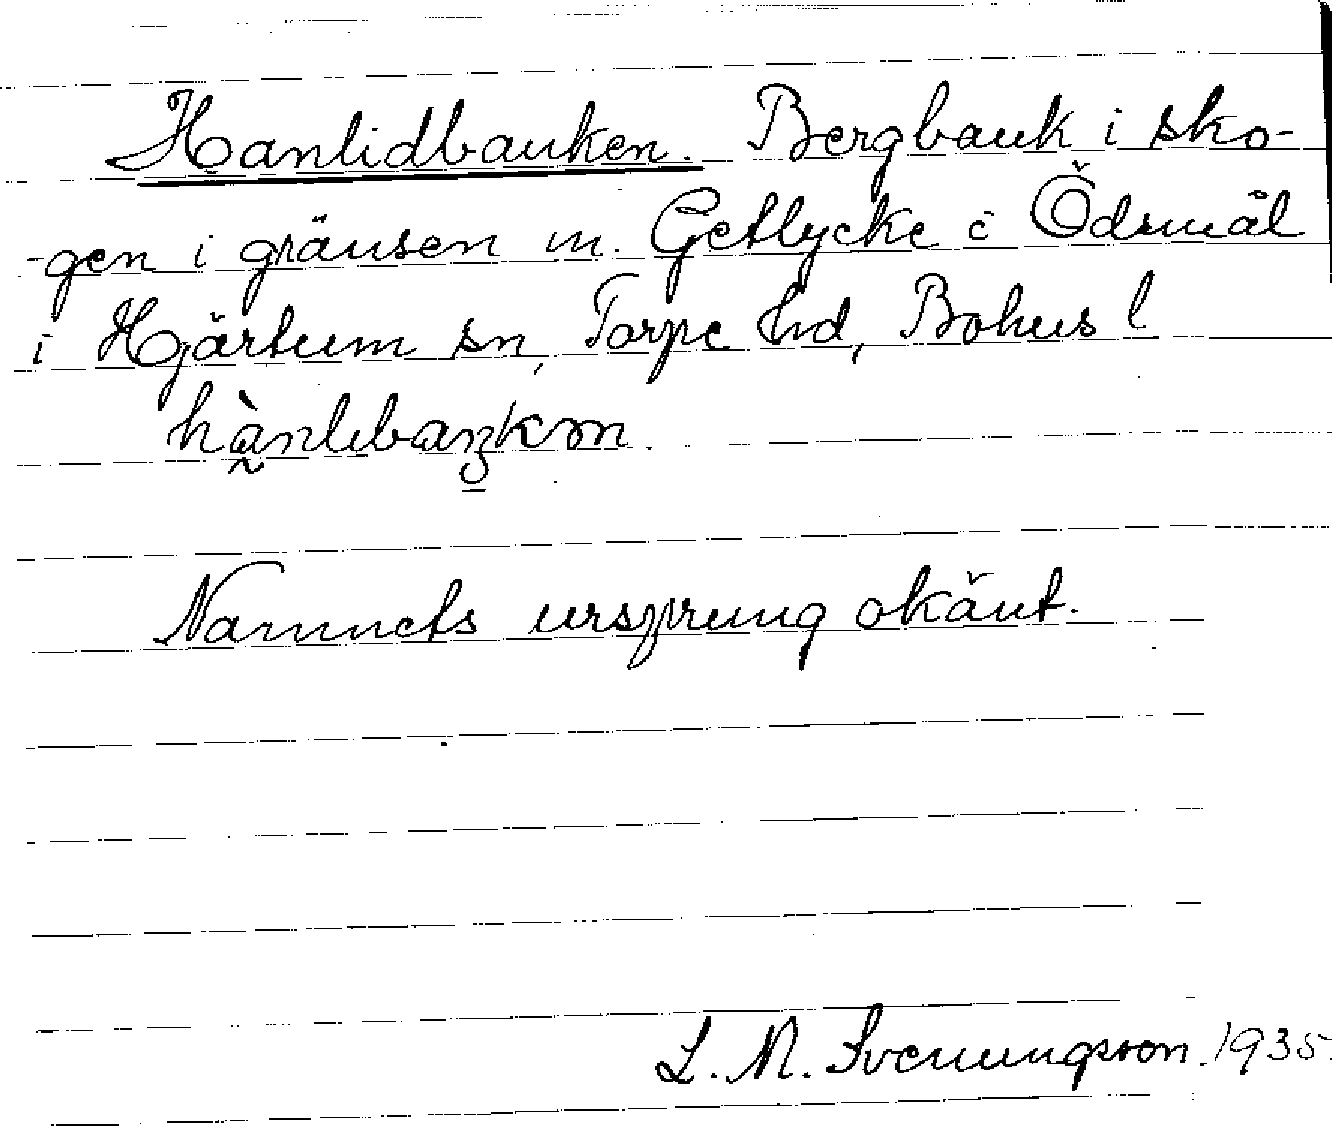 Hanlidbanken. Bergbank i sko-
gen i gränsen m. Getlycke i Ödsmål
i Hjärtum sn, Torpe hd, Bohus l
Namnets ursprung okänt.
L. N. Svenungsson. 1935.